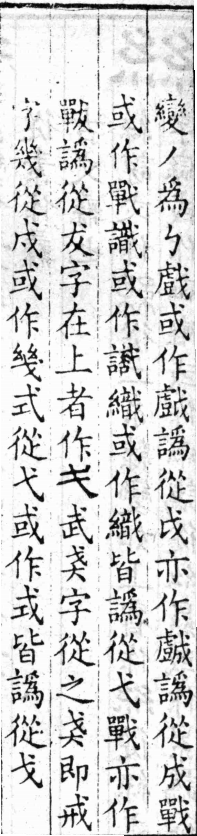 變丿爲㇉戲或作戯譌從戉亦作戱譌從成戰
或作戰識或作識織或作織皆譌從弋戰亦作
戰譌從犮字在上者作𢦏武㦮字從之㦮即戒
字幾從戍或作幾式從弋或作式皆譌從戈